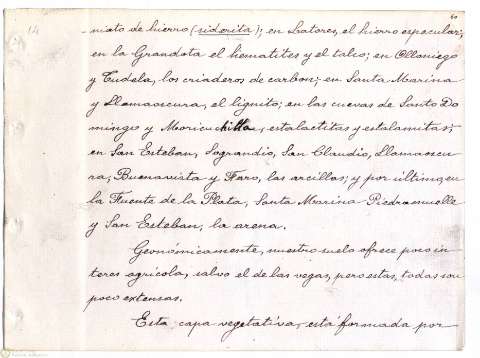 14
nato de hierro (siderita); en Latores, el hierro especular;
en la Grandota el hematites y el talco; en Olloniego
y Tudela, los criaderos de carbon; en Santa Marina
y Llamaoscura, el lignito; en las cuevas de Santo Do
mingo y estalactitas y estalacmitas;
en San Esteban, Sograndio, San Claudio, Llamaoscu
ra, Buenavista y Faro, las arcillas; y por último, en
la Fuente de la Plata, Santa Marina Piedramuelle
y San Esteban, la arena.
Geonómicamente, nuestro suelo ofrece poco in-
teres agricola, salvo el de las vegas, pero estas, todas son
poco extensas.
Esta capa vegetativa, está formada por